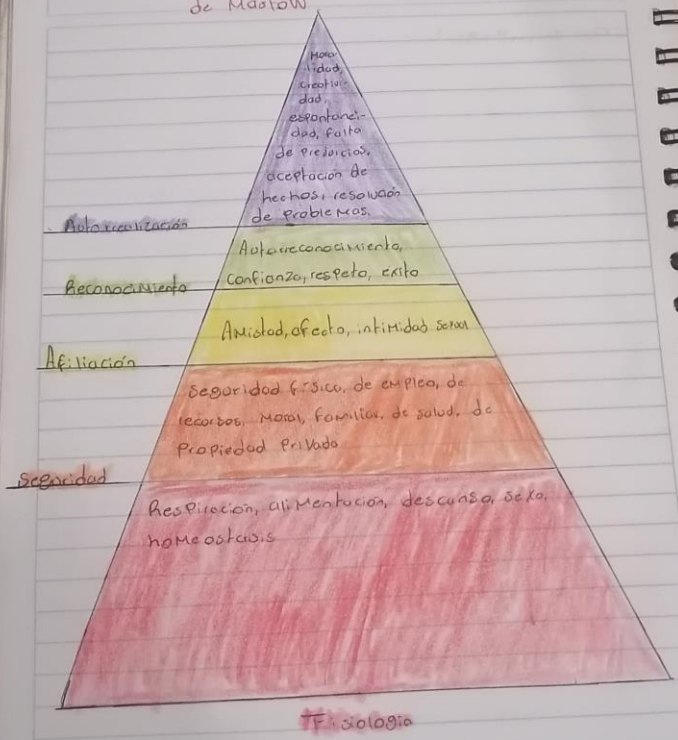 de Maslow
Mora
lidad,
creativi-
dad,
espontanei-
dad, falta
de prejuicios,
aceptación de
hechos, resolución
de problemas.
Autorrealización
Autorreconocimiento,
confianza, respeto, exito
Reconocimiento
Amistad, afecto, intimidad sexual
Afiliación
Seguridad física, de empleo, de
recursos, moral, familiar, de salud, de
propiedad privada
Seguridad
Respiración, alimentación, descanso, sexo,
homeostasis
Fisiologia